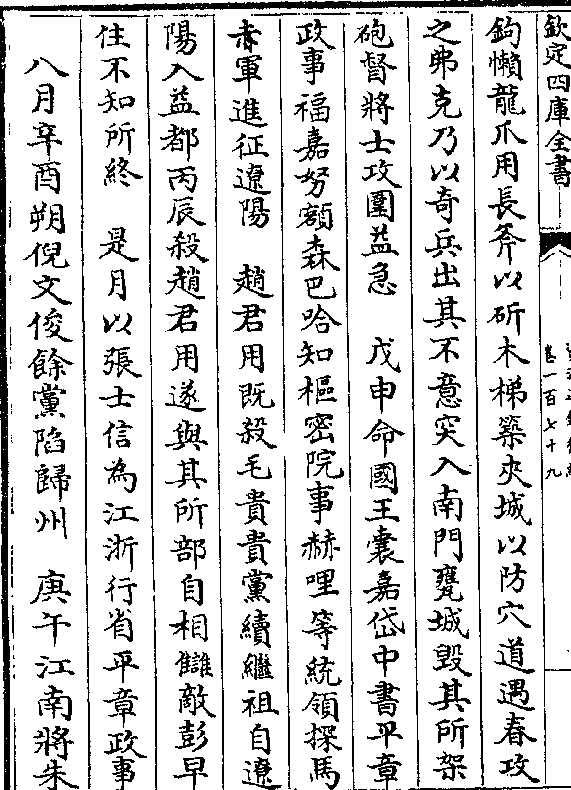 欽定四庫全書
卷一百七十九
鉤懶龍爪用長斧以斫木梯築夾城以防穴道遇春攻
之弗克乃以奇兵出其不意突入南門甕城毀其所架
砲督將士攻圍益急　戊申命國王囊嘉岱中書平章
政事福嘉努額森巴哈知樞密院事赫哩等統領探馬
赤軍進征遼陽　趙君用既殺毛貴貴黨續繼祖自遼
陽入益都丙辰殺趙君用遂與其所部自相讎敵彭早
住不知所終　是月以張士信為江浙行省平章政事
八月辛酉朔倪文俊餘黨陷歸州　庚午江南將朱